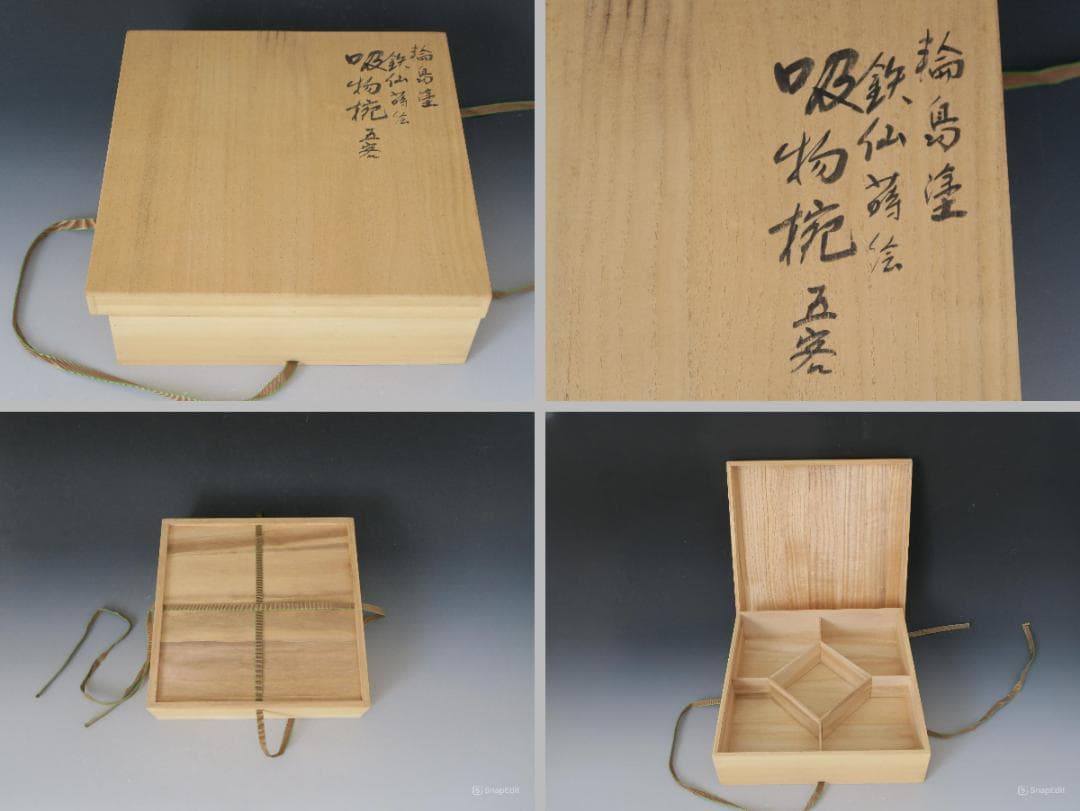 輪島塗
鉄仙蒔絵
吸物椀 五客
輪島塗
鉄仙蒔絵
吸物椀 五客
SnapEdit
SnapEdit